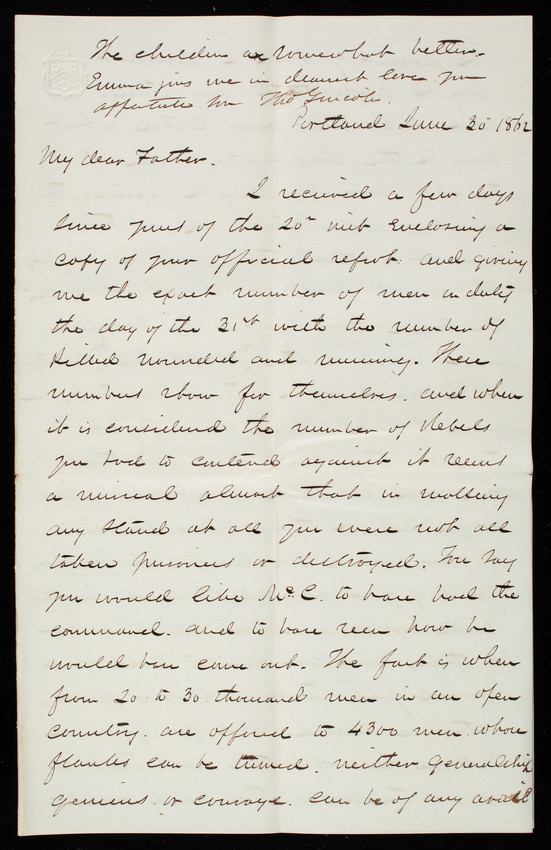 The children are somewhat better.
Emma joins me in dearest love your
affectionate son Thos Lincoln.
Portland June 30 1862
My dear Father.
I received a few days
since yours of the 20" inst enclosing a
copy of your official report. and giving
me the exact number of men on duty
the day of the 31st with the number of
Killed wounded and missing. These
numbers show for themselves. and when
it is considered the number of Rebels
you had to contend against it seems
a miracle almost that in making
any stand at all you were not all
taken prisoners or destroyed. You say
you would like McC. to have had the
command. and to have seen how he
would have come out. The fact is when
from 20 to 30 thousand men in an open
country. are opposed to 4300 men whose
flanks can be turned. neither Generalship
genius or courage. can be of any avail